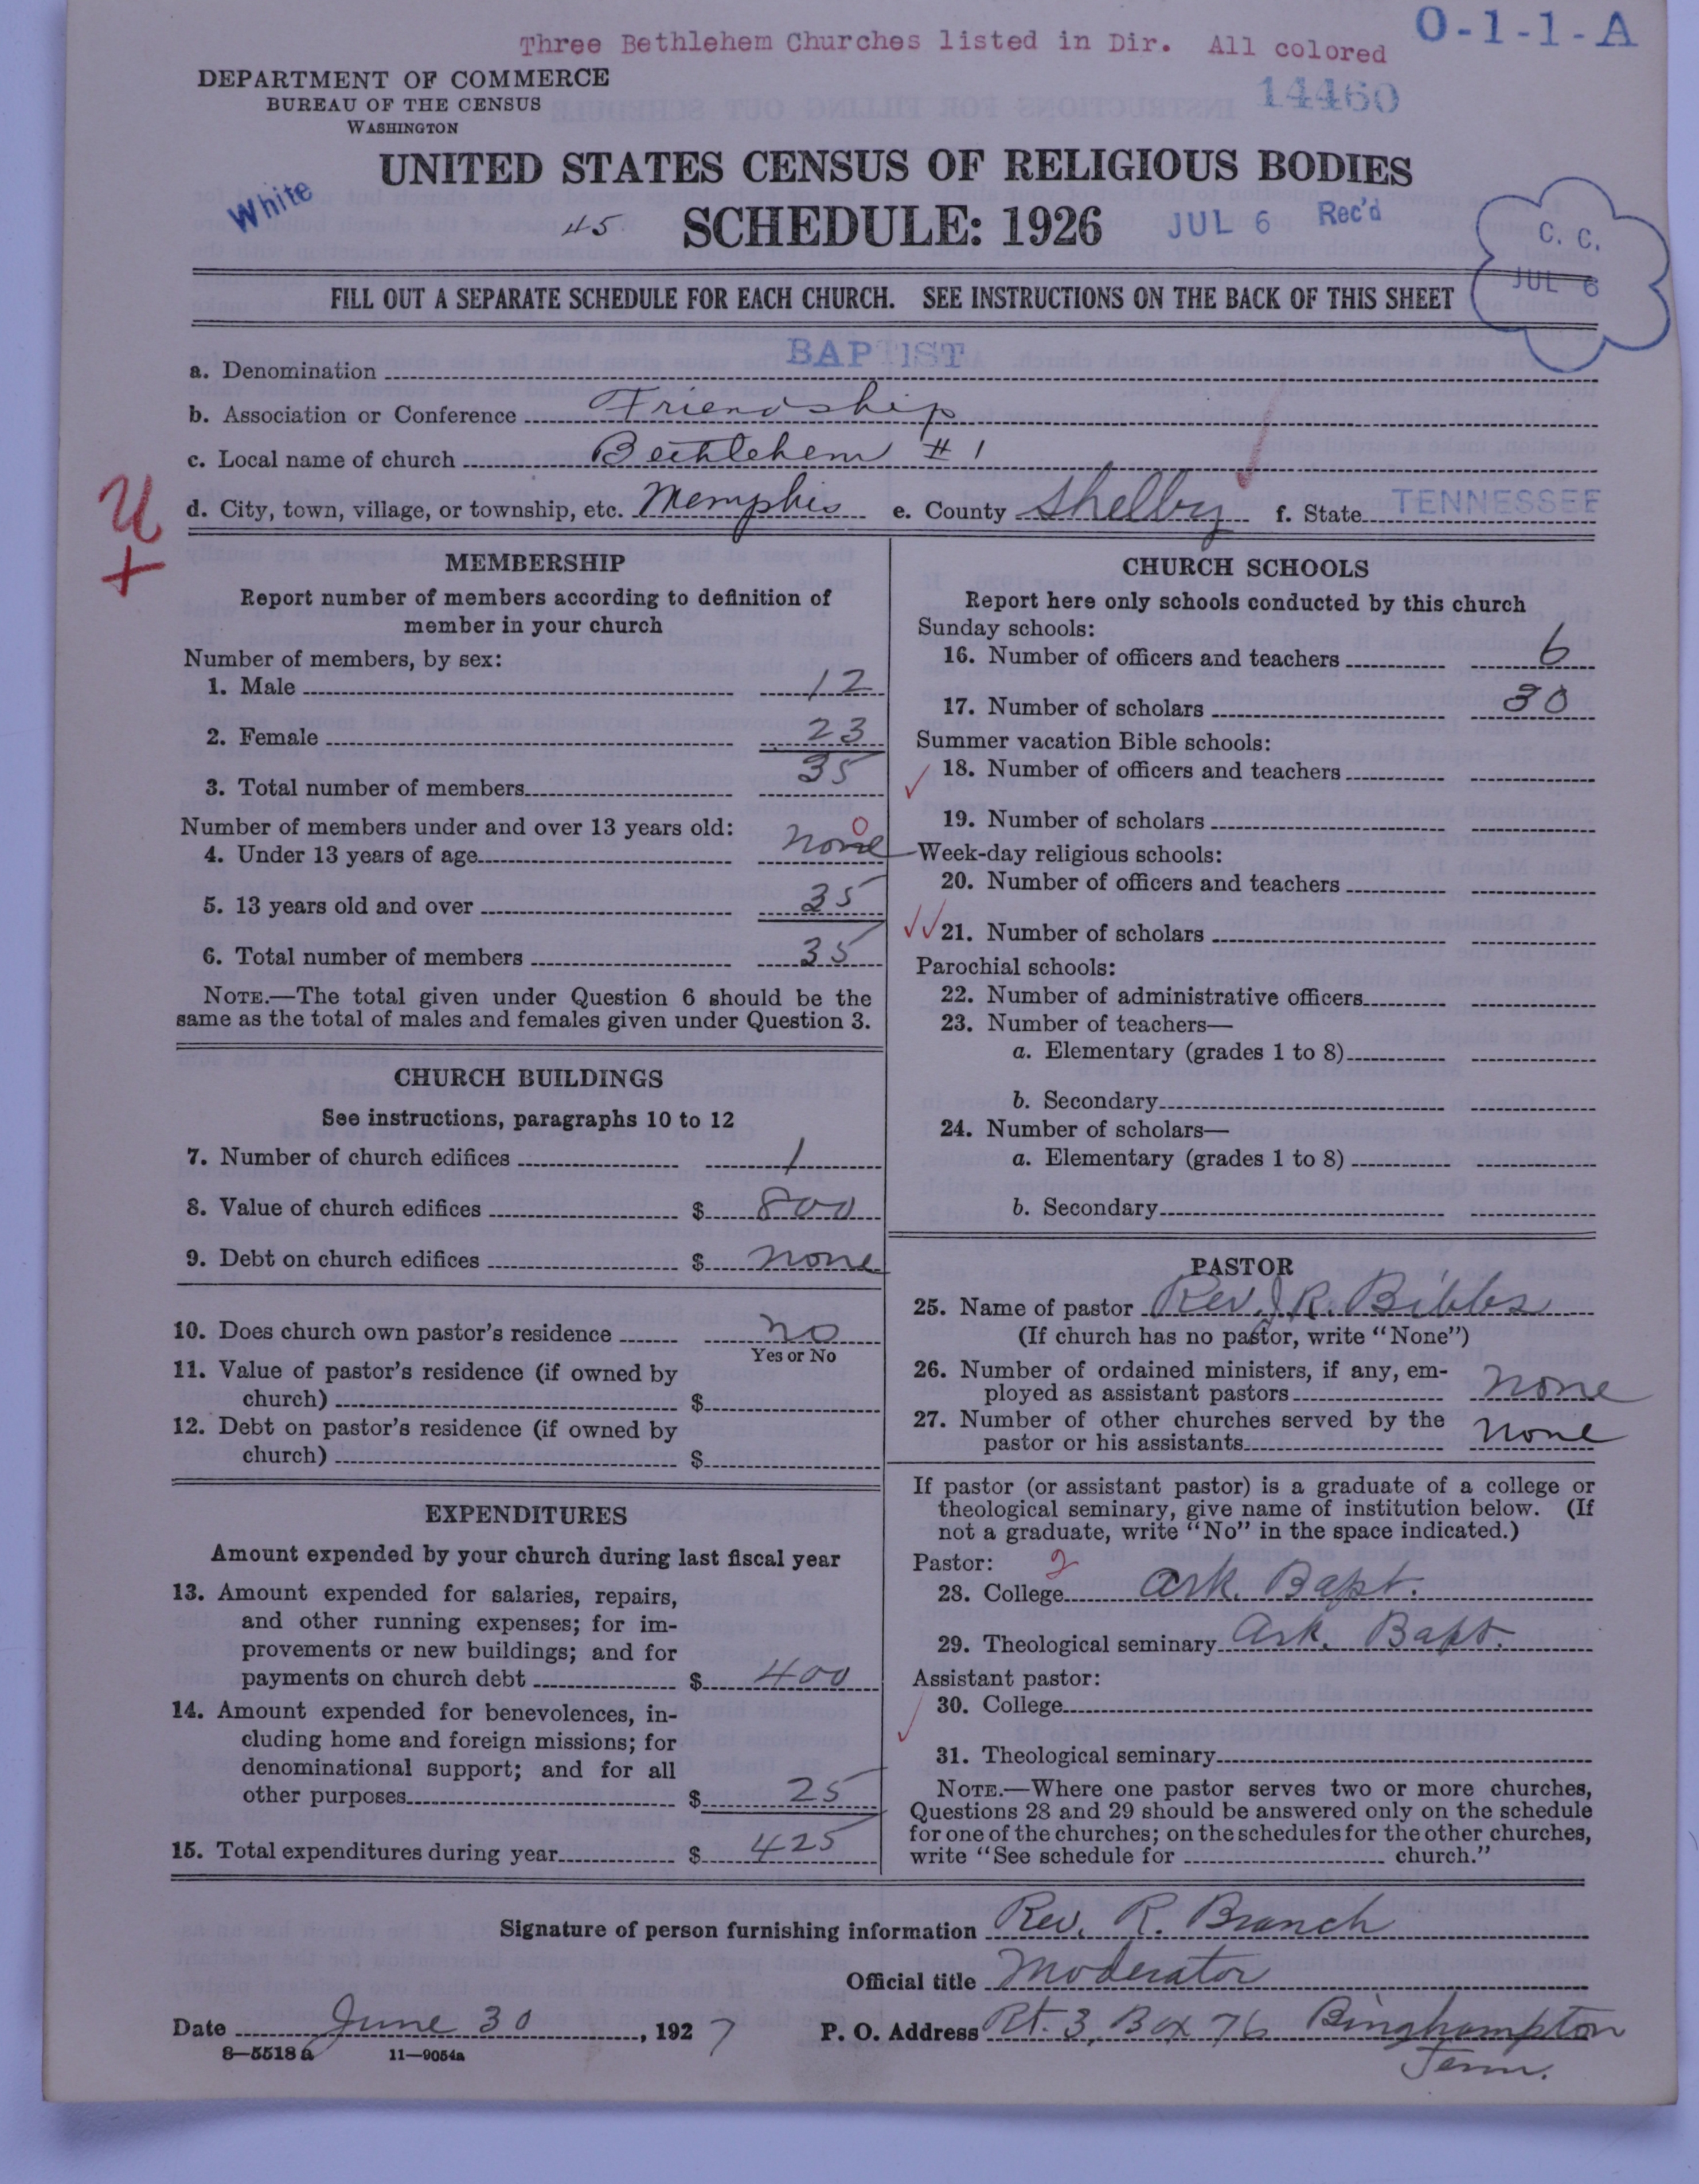 Three Bethlehem Churches listed in Dir. All colored
O-1-1-A
DEPARTMENT OF COMMERCE
BUREAU OF THE CENSUS
WASHINGTON
14460
UNITED STATES CENSUS OF RELIGIOUS BODIES
White
45
SCHEDULE: 1926
JUL 6 Rec'd
C. C.
JUL 6
FILL OUT A SEPARATE SCHEDULE FOR EACH CHURCH. SEE INSTRUCTIONS ON THE BACK OF THIS SHEET
a. Denomination BAPTIST
b. Association or Conference Friendship
c. Local name of church Bethlehem #1
d. City, town, village, or township, etc. Memphis e. County Shelby f. State TENNESSEE
MEMBERSHIP
Report number of members according to definition of
member in your church
Number of members, by sex:
1. Male 12
2. Female 23
3. Total number of members 35
Number of members under and over 13 years old:
4. Under 13 years of age none 0
5. 13 years old and over 35
6. Total number of members 35
NOTE.—The total given under Question 6 should be the
same as the total of males and females given under Question 3.
CHURCH BUILDINGS
See instructions, paragraphs 10 to 12
7. Number of church edifices 1
8. Value of church edifices $ 800
9. Debt on church edifices $ none
10. Does church own pastor's residence no
Yes or No
11. Value of pastor's residence (if owned by
church) $
12. Debt on pastor's residence (if owned by
church) $
EXPENDITURES
Amount expended by your church during last fiscal year
13. Amount expended for salaries, repairs,
and other running expenses; for im-
provements or new buildings; and for
payments on church debt $ 400
14. Amount expended for benevolences, in-
cluding home and foreign missions; for
denominational support; and for all
other purposes $ 25
15. Total expenditures during year $ 425
CHURCH SCHOOLS
Report here only schools conducted by this church
Sunday schools:
16. Number of officers and teachers 6
17. Number of scholars 30
Summer vacation Bible schools:
18. Number of officers and teachers
19. Number of scholars
Week-day religious schools:
20. Number of officers and teachers
21. Number of scholars
Parochial schools:
22. Number of administrative officers
23. Number of teachers—
a. Elementary (grades 1 to 8)
b. Secondary
24. Number of scholars—
a. Elementary (grades 1 to 8)
b. Secondary
PASTOR
25. Name of pastor Rev. J. R. Bibbs
(If church has no pastor, write "None")
26. Number of ordained ministers, if any, em-
ployed as assistant pastors none
27. Number of other churches served by the
pastor or his assistants none
If pastor (or assistant pastor) is a graduate of a college or
theological seminary, give name of institution below. (If
not a graduate, write "No" in the space indicated.)
Pastor: 2
28. College Ark. Bapt.
29. Theological seminary Ark. Bapt.
Assistant pastor:
30. College
31. Theological seminary
NOTE.—Where one pastor serves two or more churches,
Questions 28 and 29 should be answered only on the schedule
for one of the churches; on the schedules for the other churches,
write "See schedule for church."
Signature of person furnishing information Rev. R. Branch
Official title Moderator
Date June 30, 1927 P. O. Address Rt. 3, Box 76 Binghampton
Tenn.
8—5518a 11—9054a